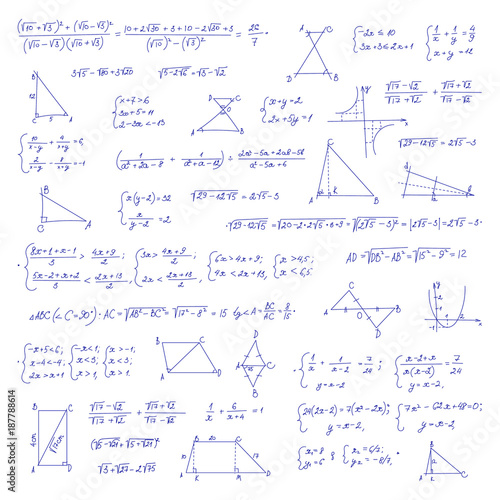 (√10+√3)²+(√10-√3)² / (√10-√3)(√10+√3) = 10+2√30+3+10-2√30+3 / (√10)²-(√3)² = 26/7 .
{-2x≤10
3x+3≤2x+1
{1/x+1/y=4/9
x+y=12
3√5-√80+3√20
√5-2√6=√3-√2
{x+7>6
3x+5=11
2-3x<-13
{x+y=2
2x+5y=1
√17-√2/√17+√2 + √17+√2/√17-√2
{10/x-y+4/x+y=6,
2/x-y-8/x+y=-1
√29-12√5=2√5-3
{x(y-2)=32
x/y-2=2
√29-12√5=2√5-3
.√29-12√5=√20-2·2√5·3+9=√(2√5-3)²=|2√5-3|=2√5-3.
.{8x+1+x-1/3>4x+9/2;
5x-2-x+2/3<2x+13/2,
{3x>4x+9/2;
2x<2x+13/2,
{6x>4x+9;
4x<2x+13,
{x>4,5;
x<6,5.
AD=√DB²-AB²=√15²-9²=12
△ABC(∠C=90°): AC=√AB²-BC²=√17²-8²=15 tg∠A=BC/AC=8/15.
.{-x+5<6;
x-4<-4;
2x>x+1
{-x<1;
x<3;
x>1.
{x>-1;
x<3;
x>1.
{1/x+1/x-2=7/24;
y=x-2
.{x-2+x/x(x-2)=7/24
y=x-2,
√17-√2/√17+√2 + √17+√2/√17-√2
1/x+6/x+4=1
{24(2x-2)=7(x²-2x);
y=x-2,
{7x²-62x+48=0;
y=x-2,
√3+√27-2√75
{x₁=8
y₁=6
{x₂=6/7;
y₂=-8/7.